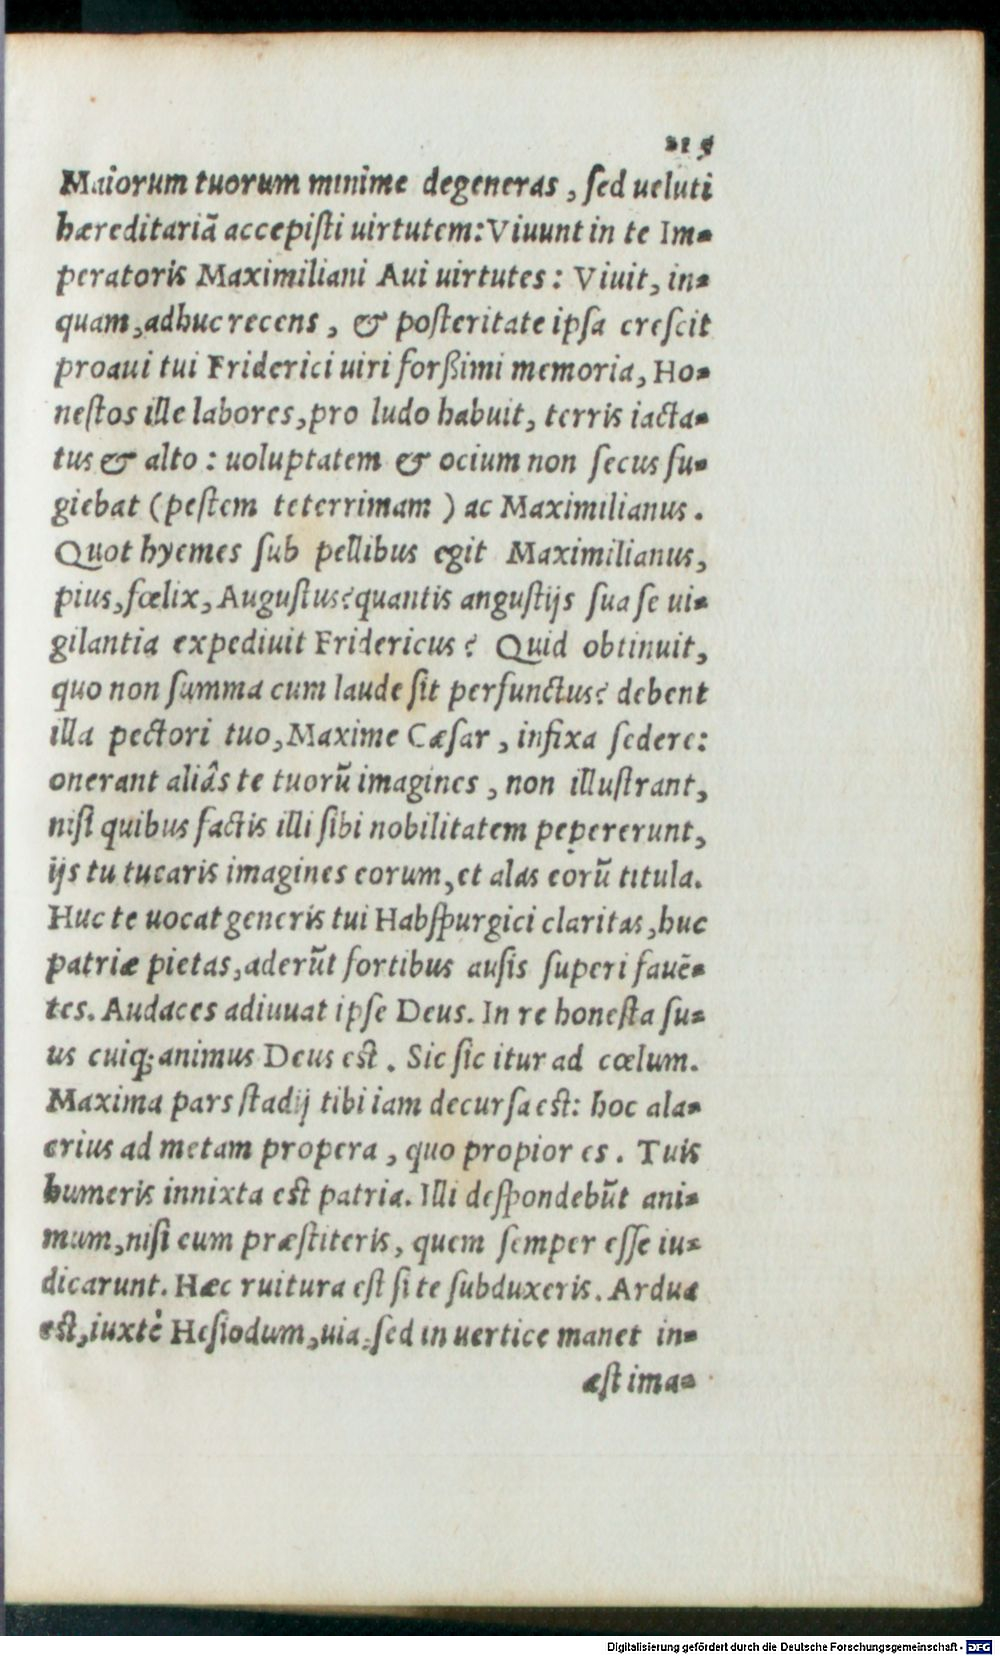 215
Maiorum tuorum minime degeneras, sed ueluti
hæreditariã accepisti uirtutem: Viuunt in te Im-
peratoris Maximiliani Aui uirtutes: Viuit, in-
quam, adhuc recens, & posteritate ipsa crescit
proaui tui Friderici uiri forßimi memoria, Ho-
nestos ille labores, pro ludo habuit, terris iacta-
tus & alto: uoluptatem & ocium non secus fu-
giebat (pestem teterrimam) ac Maximilianus.
Quot hyemes sub pellibus egit Maximilianus,
pius, fœlix, Augustus? quantis angustijs sua se ui-
gilantia expediuit Fridericus? Quid obtinuit,
quo non summa cum laude sit perfunctus? debent
illa pectori tuo, Maxime Cæsar, infixa sedere:
onerant aliâs te tuorũ imagines, non illustrant,
nisi quibus factis illi sibi nobilitatem pepererunt,
ijs tu tucaris imagines eorum, et alas eorũ titula.
Huc te uocat generis tui Habspurgici claritas, huc
patriæ pietas, aderũt fortibus ausis superi fauẽ-
tes. Audaces adiuuat ipse Deus. In re honesta su-
us cuiq; animus Deus est. Sic sic itur ad cœlum.
Maxima pars stadij tibi iam decursa est: hoc ala-
crius ad metam propera, quo propior es. Tuis
humeris innixta est patria. Illi despondebũt ani-
mum, nisi eum præstiteris, quem semper esse iu-
dicarunt. Hæc ruitura est si te subduxeris. Ardua
est, iuxtè Hesiodum, uia, sed in uertice manet in-
æstima-
Digitalisierung gefördert durch die Deutsche Forschungsgemeinschaft - DFG